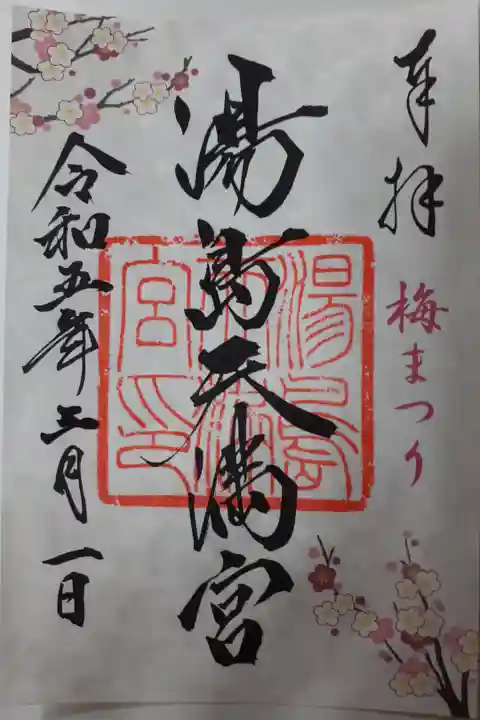 奉拝
梅まつり
湯島天満宮
湯島
天満
宮印
令和五年三月一日